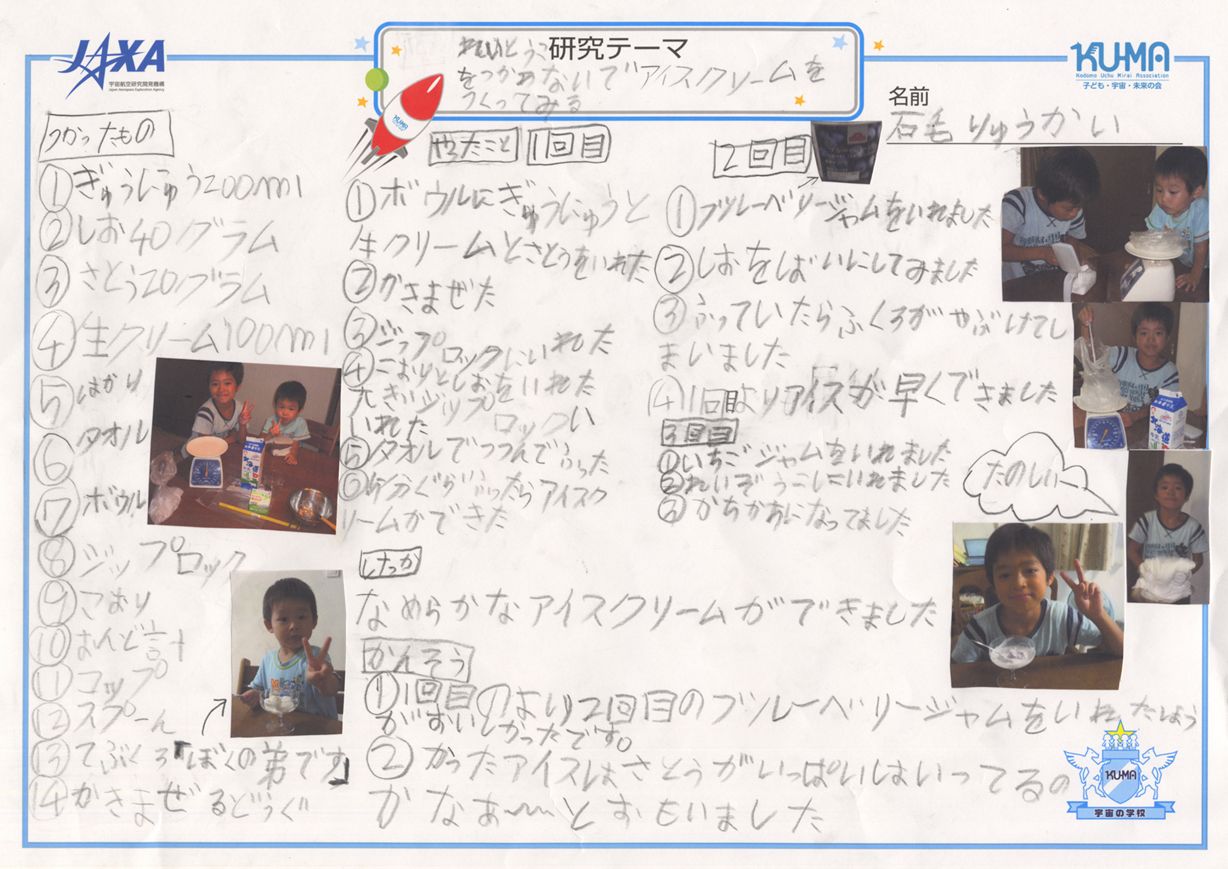 JAXA
宇宙航空研究開発機構
Japan Aerospace Exploration Agency
研究テーマ
れいとうこ
をつかわないでアイスクリームを
つくってみる
KUMA
KUMA
Kodomo Uchu Mirai Association
子ども・宇宙・未来の会
名前
石毛りゅうかい
つかったもの
①ぎゅうにゅう200ml
②しお40グラム
③さとう20グラム
④生クリーム100ml
⑤はかり
⑥タオル
⑦ボウル
⑧ジップロック
⑨こおり
⑩おんど計
⑪コップ
⑫スプーん
⑬てぶくろ
「ぼくの弟です」
⑭かきまぜるどうぐ
やったこと
1回目
①ボウルにぎゅうにゅうと
生クリームとさとうをいれた
②かきまぜた
③ジップロックにいれた
④こおりとしおをいれた
大きいジップロックい
いれた
⑤タオルでつつんでふった
⑥分ぐらいふったらアイスク
リームができた
2回目
①ブルーベリージャムをいれました
②しおをばいにしてみました
③ふっていたらふくろがやぶけてし
まいました
④1回目よりアイスが早くできました
3回目
①いちごジャムをいれました
②れいぞうこにいれました
③かちかちになってました
たのしいー
けっか
なめらかなアイスクリームができました
かんそう
①1回目のより2回目のブルーベリージャムをいれた
がおいしかったです。
②かったアイスはさとうがいっぱいはいってるの
かなぁ〜〜とおもいました
KUMA
宇宙の学校